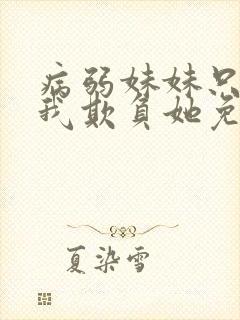 病弱妹妹只
我欺负她免
夏染雪